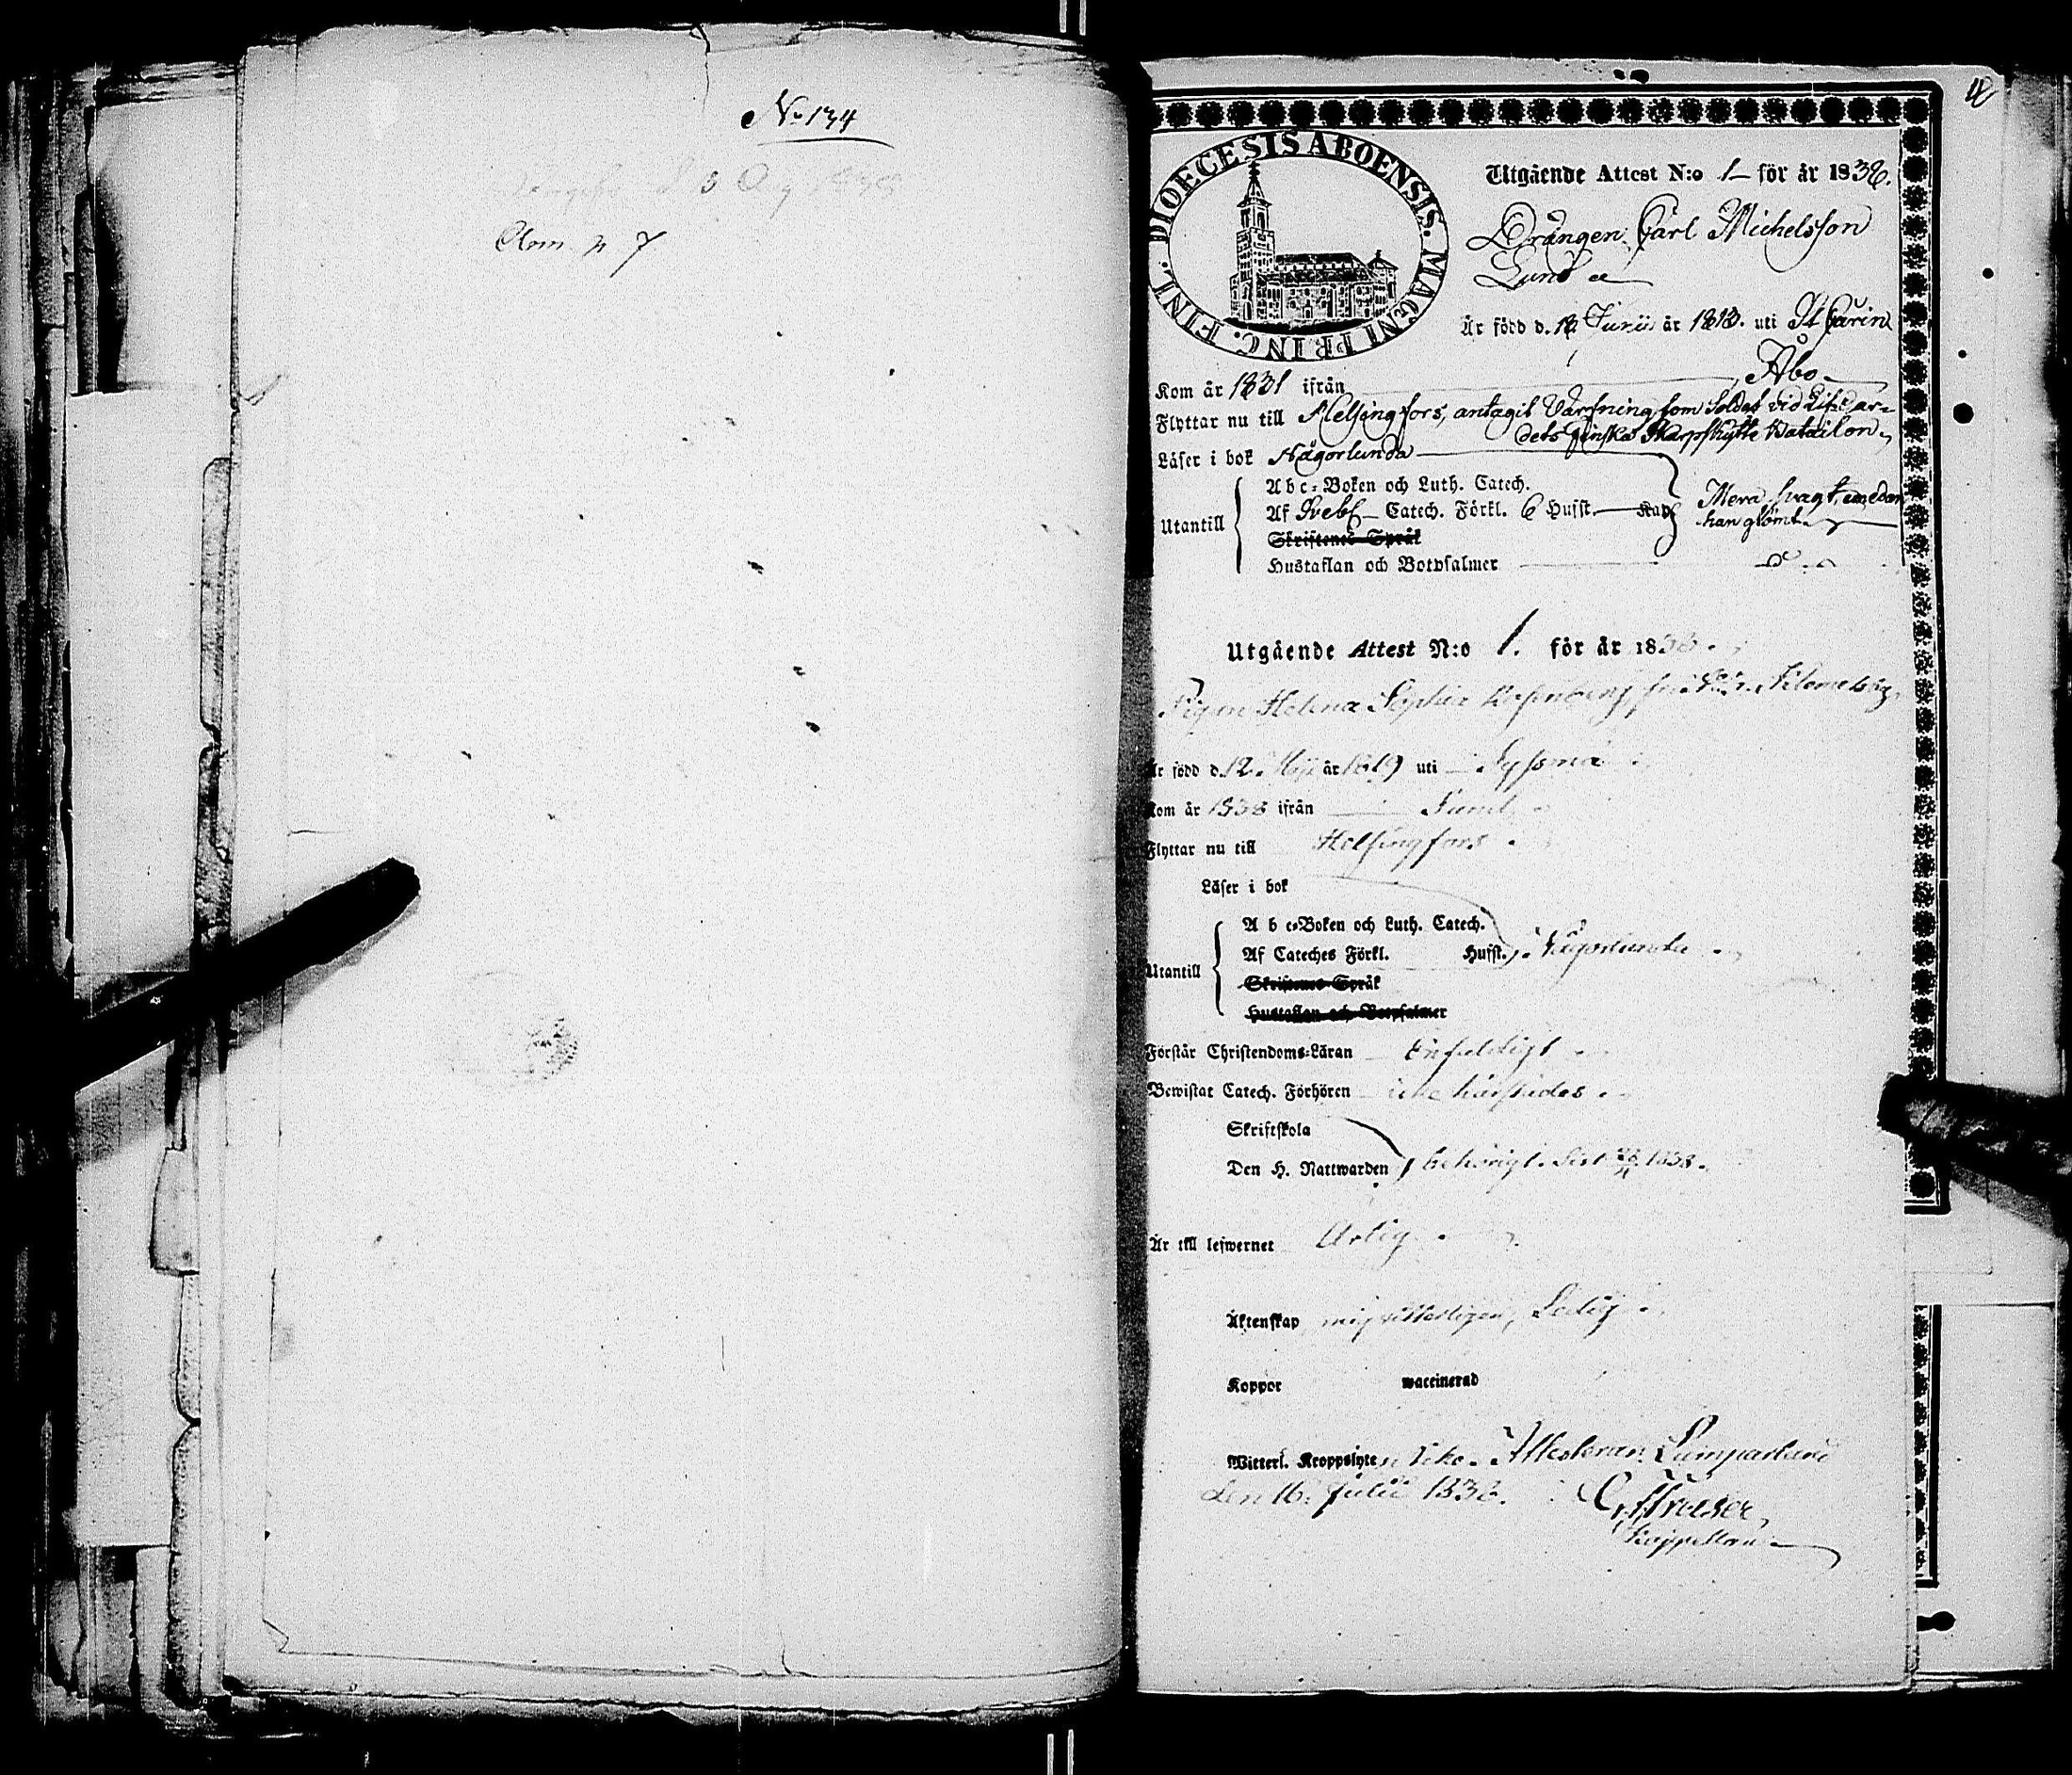 No 134
3 Aug
n 7
18
DIOECESIS ABOENSIS. MAGNI PRINC. FINL.
Utgående Attest N:o 1 för år 1838.
Drängen Carl Michelsson
Lund
Är född d. 18 Junii år 1813. uti St Carin
Kom år 1831 ifrån Åbo
Flyttar nu till Helsingfors, antagit Värfning som Soldat vid Lif Gar-
dets Finska Skarpskytte Batailon
Läser i bok Någorlunda
Utantill
A b c-Boken och Luth. Catech.
Af Svebl Catech. Förkl. 6 Hufst. Mera svagt, emedan
han glömt
Skriftenes Språk
Hustaflan och Botpsalmer
Utgående Attest N:o 1. för år 18
Pigan Helena Sophia
Är född d. 12 Maji år 1819 uti Syssmä
Kom år 1838 ifrån Sund
Flyttar nu till Helsingfors
Läser i bok
Utantill
A b c-Boken och Luth. Catech.
Af Cateches Förkl. Hufst. Någorlunda
Skriftenes Språk
Hustaflan och Botpsalmer
Förstår Christendoms-Läran Enfaldigt
Bewistat Catech. Förhören icke härstädes
Skriftskola
Den H. Nattwarden behörigt. Sist 1838.
Är till lefwernet Ärlig
Äktenskap Ledig
Koppor waccinerad
Witterl. Kroppslyte Icke. Attesterar. Lumparland
den 16. Julii 1838.
Kappellan